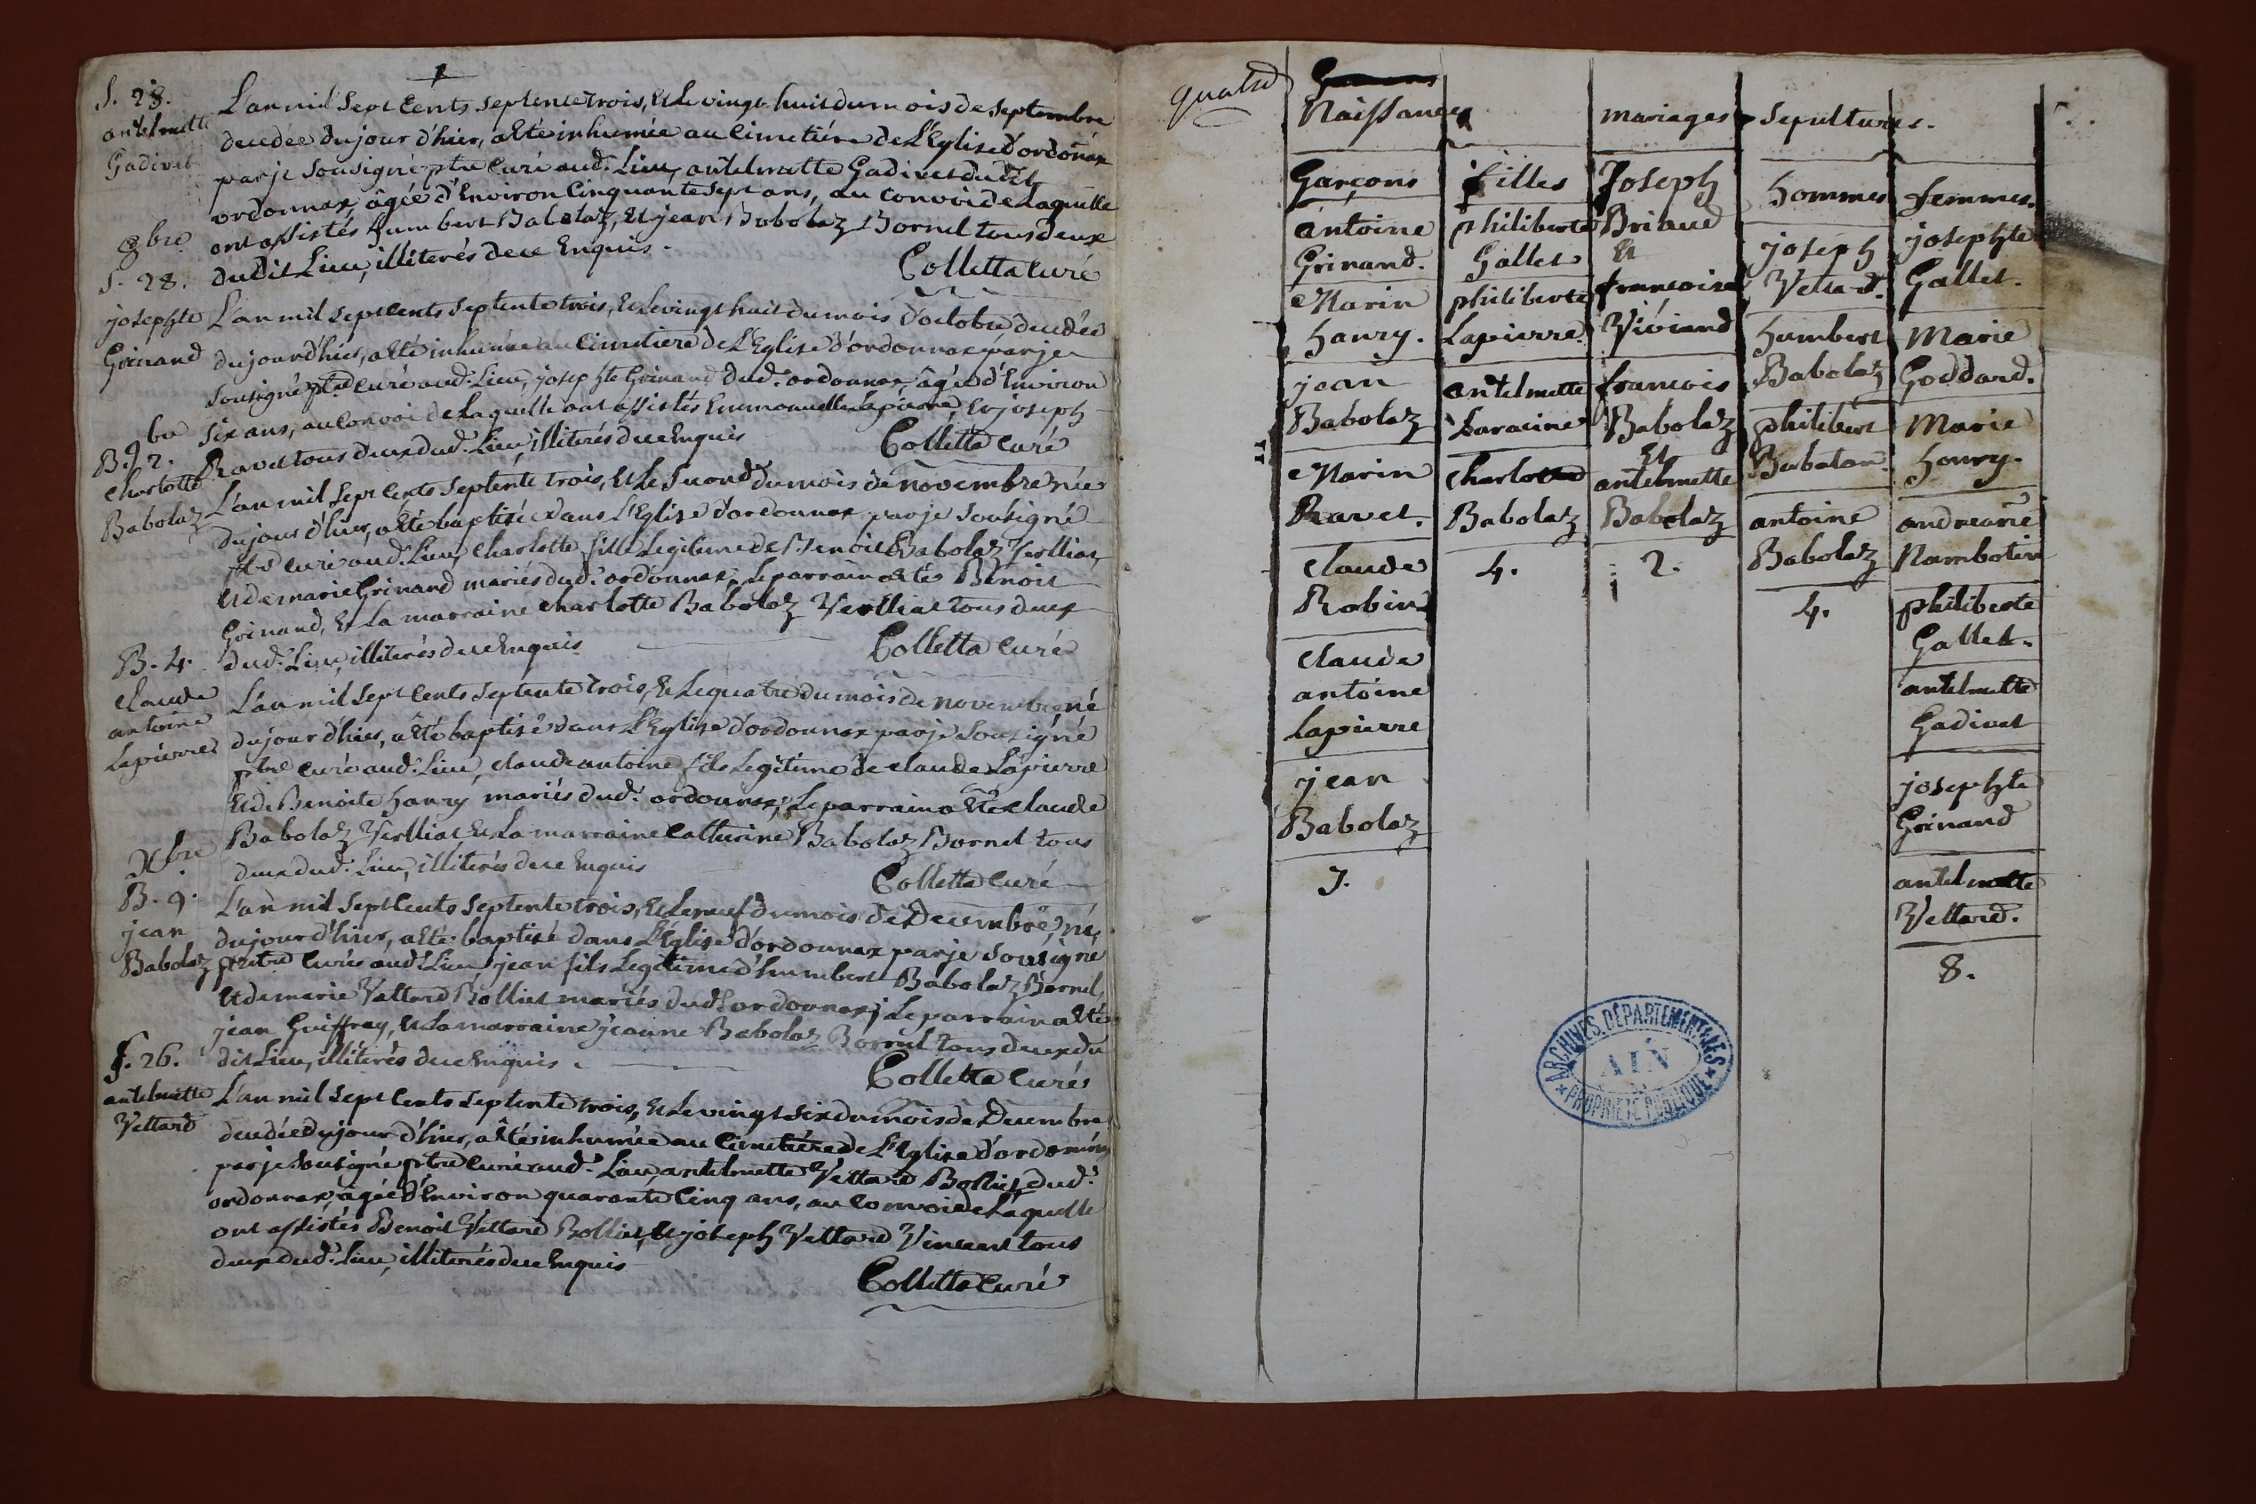 S. 28.
antelmette
Gadivet
L'an mil sept cents septente trois, et le vingt huit du mois de septembre
decedee du jour d'hier, a êté inhumée au cimetière de L'Eglise d'ordonax
par je sousigné ptre curé aud. Lieu, antelmette Gadivet dudit
ordonnax, âgée d'Environ Cinquante sept ans, au convoi de Laquelle
ont assistés humbert Babolaz, et jean Babolaz Bornel tous deux
dudit Lieu, illiterés de ce Enquis.
Colletta curé
8bre
S. 28.
josephte
Grinand
L'an mil sept cents septente trois, et le vingt huit du mois d'octobre decedée
du jour d'hier, a êté inhumée au cimetiere de L'Eglise d'ordonnax par je
sousigné ptre curé aud. Lieu, josephte Grinand dud. ordonnax, âgée d'Environ
six ans, au convoi de Laquelle ont assistés Emmanuelle Lapierre, et joseph
Ravet tous deux dud. Lieu, illiterés de ce Enquis
Colletta curé
9bre
B. 2.
Charlotte
Babolaz
L'an mil sept cents septente trois, et le second du mois de novembre née
du jour d'hier, a êté baptisée dans L'Eglise d'ordonnax par je sousigné
ptre curé aud. Lieu, Charlotte fille Legitime de Benoit Babolaz Verlliat,
et de marie Grinand mariés dud. ordonnax; Le parrain a êté Benoit
Grinand, et La marraine charlotte Babolaz Verlliat tous deux
dud. Lieu, illiterés de ce Enquis
Colletta curé
B. 4.
claude
antoine
Lapierre
L'an mil sept cents septente trois, et le quatre du mois de novembre né
du jour d'hier, a êté baptisé dans L'Eglise d'ordonnax par je sousigné
ptre curé aud. Lieu, claude antoine fils Legitime de claude Lapierre
et de Benoite hanry mariés dud. ordonnax; Le parrain a êté claude
Babolaz Verlliat et La marraine catherine Babolaz Bornel tous
deux dud. Lieu, illiterés de ce Enquis
Colletta curé
Xbre
B. 9.
jean
Babolaz
L'an mil sept cents septente trois, et le neuf du mois de Decembre, né
du jour d'hier, a êté baptisé dans L'Eglise d'ordonnax par je sousigné
prêtre curé aud. Lieu, jean fils Legitime d'humbert Babolaz Bornel,
et de marie Vettard Bolliet mariés dudit ordonnax; Le parrain a êté
jean Guiffray, et La marraine jeanne Babolaz Bornel tous deux du
dit Lieu, illiterés de ce Enquis.
Colletta curé
S. 26.
antelmette
Vettard
L'an mil sept cents septente trois, et le vingt six du mois de Decembre
decedée du jour d'hier, a êté inhumée au cimetière de L'Eglise d'ordonnax
par je sousigné ptre curé aud. Lieu, antelmette Vettard Bolliet dud.
ordonnax, âgée d'Environ quarante Cinq ans, au convoi de Laquelle
ont assistés Benoit Vettard Bolliat, et joseph Vettard Vincent tous
deux dud. Lieu, illiterés de ce Enquis
Colletta curé
quatre
Naissances
mariages
sepultures.
Garçons
filles
Joseph
Briand
Et
francoise
Viviand
hommes
femmes.
antoine
Grinand.
philiberte
Gallet
joseph
Vettard.
josephte
Gallet.
Marin
hanry.
philiberte
Lapierre.
humbert
Babolaz
Marie
Goddard.
jean
Babolaz
antelmette
Laracine
francois
Babolaz
Et
antelmette
Babolaz
philibert
Babolaz
Marie
hanry.
Marin
Ravet.
Charlotte
Babolaz
antoine
Babolaz
andreanne
Nambotin
claude
Robin
4.
2.
4.
philiberte
Gallet.
claude
antoine
lapierre
antelmette
Gadivet
jean
Babolaz
josephte
Grinand
7.
antelmette
Vettard.
8.
ARCHIVES DÉPARTEMENTALES
AIN
PROPRIÉTÉ PUBLIQUE